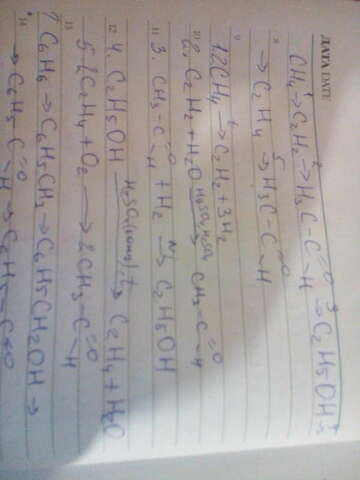 ДАТА DATE
CH4 →¹ C2H2 →² H3C-C=O H →³ C2H5OH →⁴
→ C2H4 →⁵ H3C-C=O H
1. 2CH4 →t C2H2 + 3H2
2. C2H2 + H2O → CH3-C=O H
3. CH3-C=O H + H2 →Ni C2H5OH
4. C2H5OH →H2SO4(конц), t C2H4 + H2O
5. 2C2H4 + O2 → 2CH3-C=O H
C6H6 → C6H5CH3 → C6H5CH2OH →
→ C6H5-C=O H →